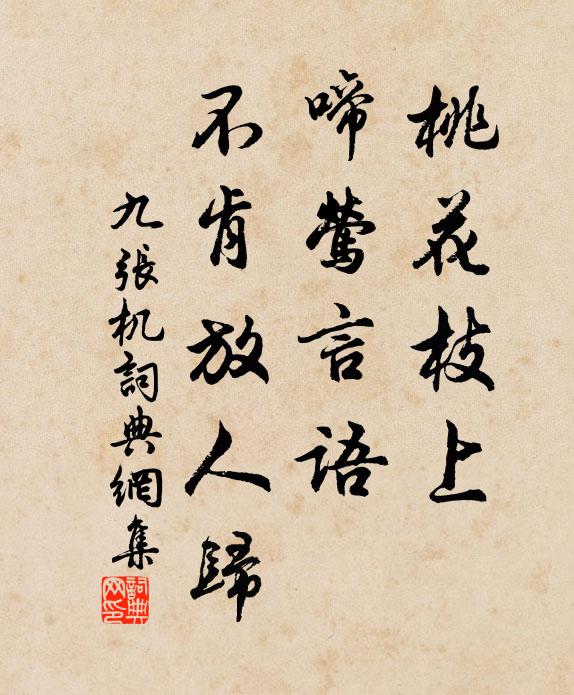 桃花枝上
啼莺言语
不肯放人歸
九張机詞典網集
詞典网印